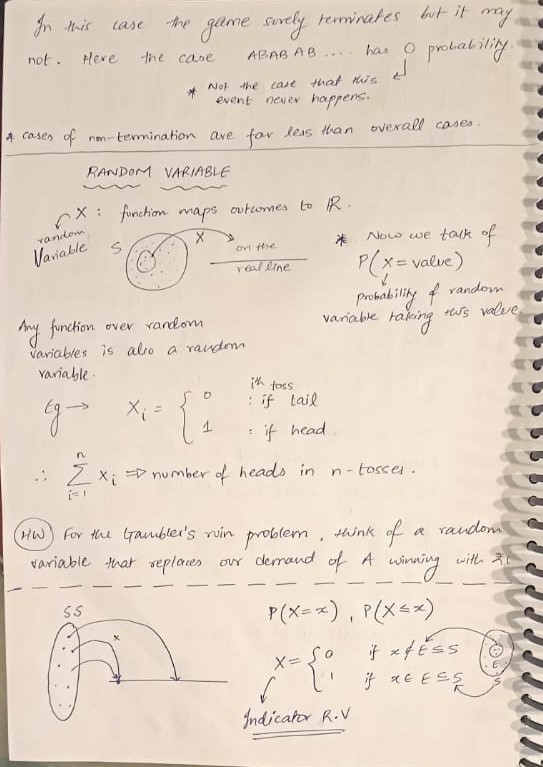 In this case the game surely terminates but it may
not. Here the case ABAB AB .... has 0 probability.
* Not the case that this
event never happens.
* cases of non-termination are far less than overall cases.
RANDOM VARIABLE
X : function maps outcomes to ℝ.
random
Variable
S
X
on the
real line
* Now we talk of
P(X = value)
probability of random
variable taking this value
Any function over random
variables is also a random
variable.
Eg → Xi = { 0 : if tail
ith toss
1 : if head.
∴ n Σ i=1 Xi ⇒ number of heads in n-tosses.
HW For the Gambler's ruin problem, think of a random
variable that replaces our demand of A winning with
SS
x
P(X=x), P(X≤x)
X = { 0 if x ∉ E ⊆ S
1 if x ∈ E ⊆ S
E
S
Indicator R.V